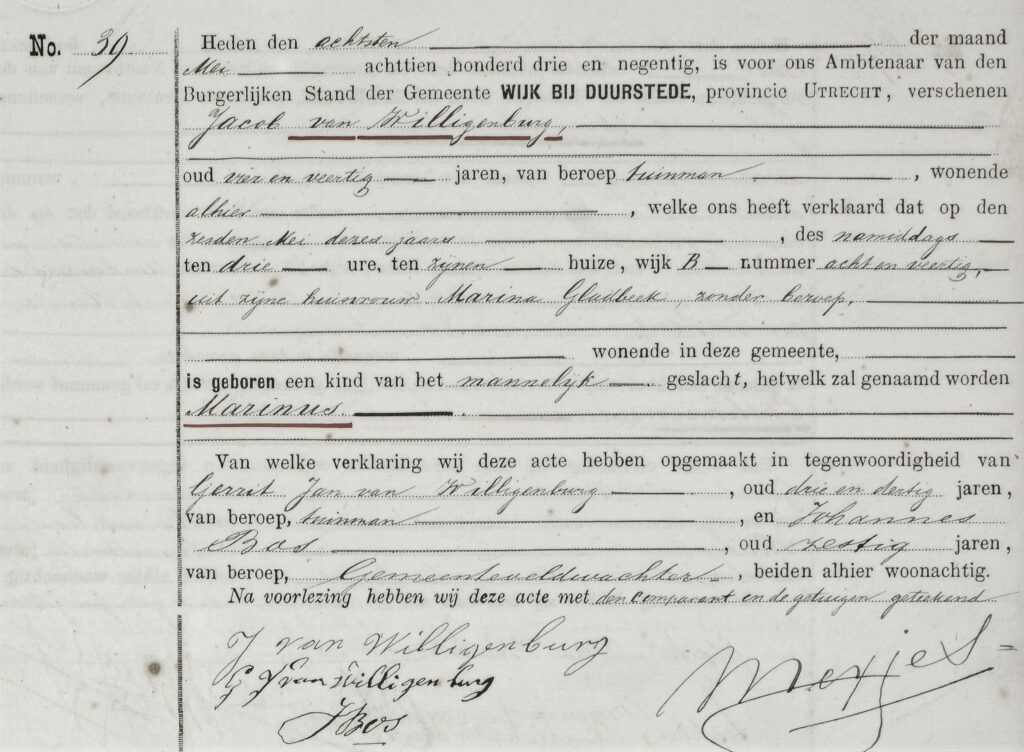 No. 39
Heden den achtsten der maand
Mei achttien honderd drie en negentig, is voor ons Ambtenaar van den
Burgerlijken Stand der Gemeente WIJK BIJ DUURSTEDE, provincie UTRECHT, verschenen
Jacob van Willigenburg,
oud vier en veertig jaren, van beroep tuinman, wonende
alhier, welke ons heeft verklaard dat op den
zesden Mei dezes jaars, des namiddags
ten drie ure, ten zijnen huize, wijk B nummer acht en veertig,
uit zijne huisvrouw Marina Gladbeek, zonder beroep,
wonende in deze gemeente,
is geboren een kind van het mannelyk geslacht, hetwelk zal genaamd worden
Marinus.
Van welke verklaring wij deze acte hebben opgemaakt in tegenwoordigheid van
Gerrit Jan van Willigenburg, oud drie en dertig jaren,
van beroep, tuinman, en Johannes
Bos, oud zestig jaren,
van beroep, Gemeenteveldwachter, beiden alhier woonachtig.
Na voorlezing hebben wij deze acte met den comparant en de getuigen geteekend
J van Willigenburg
G J van Willigenburg
J Bos